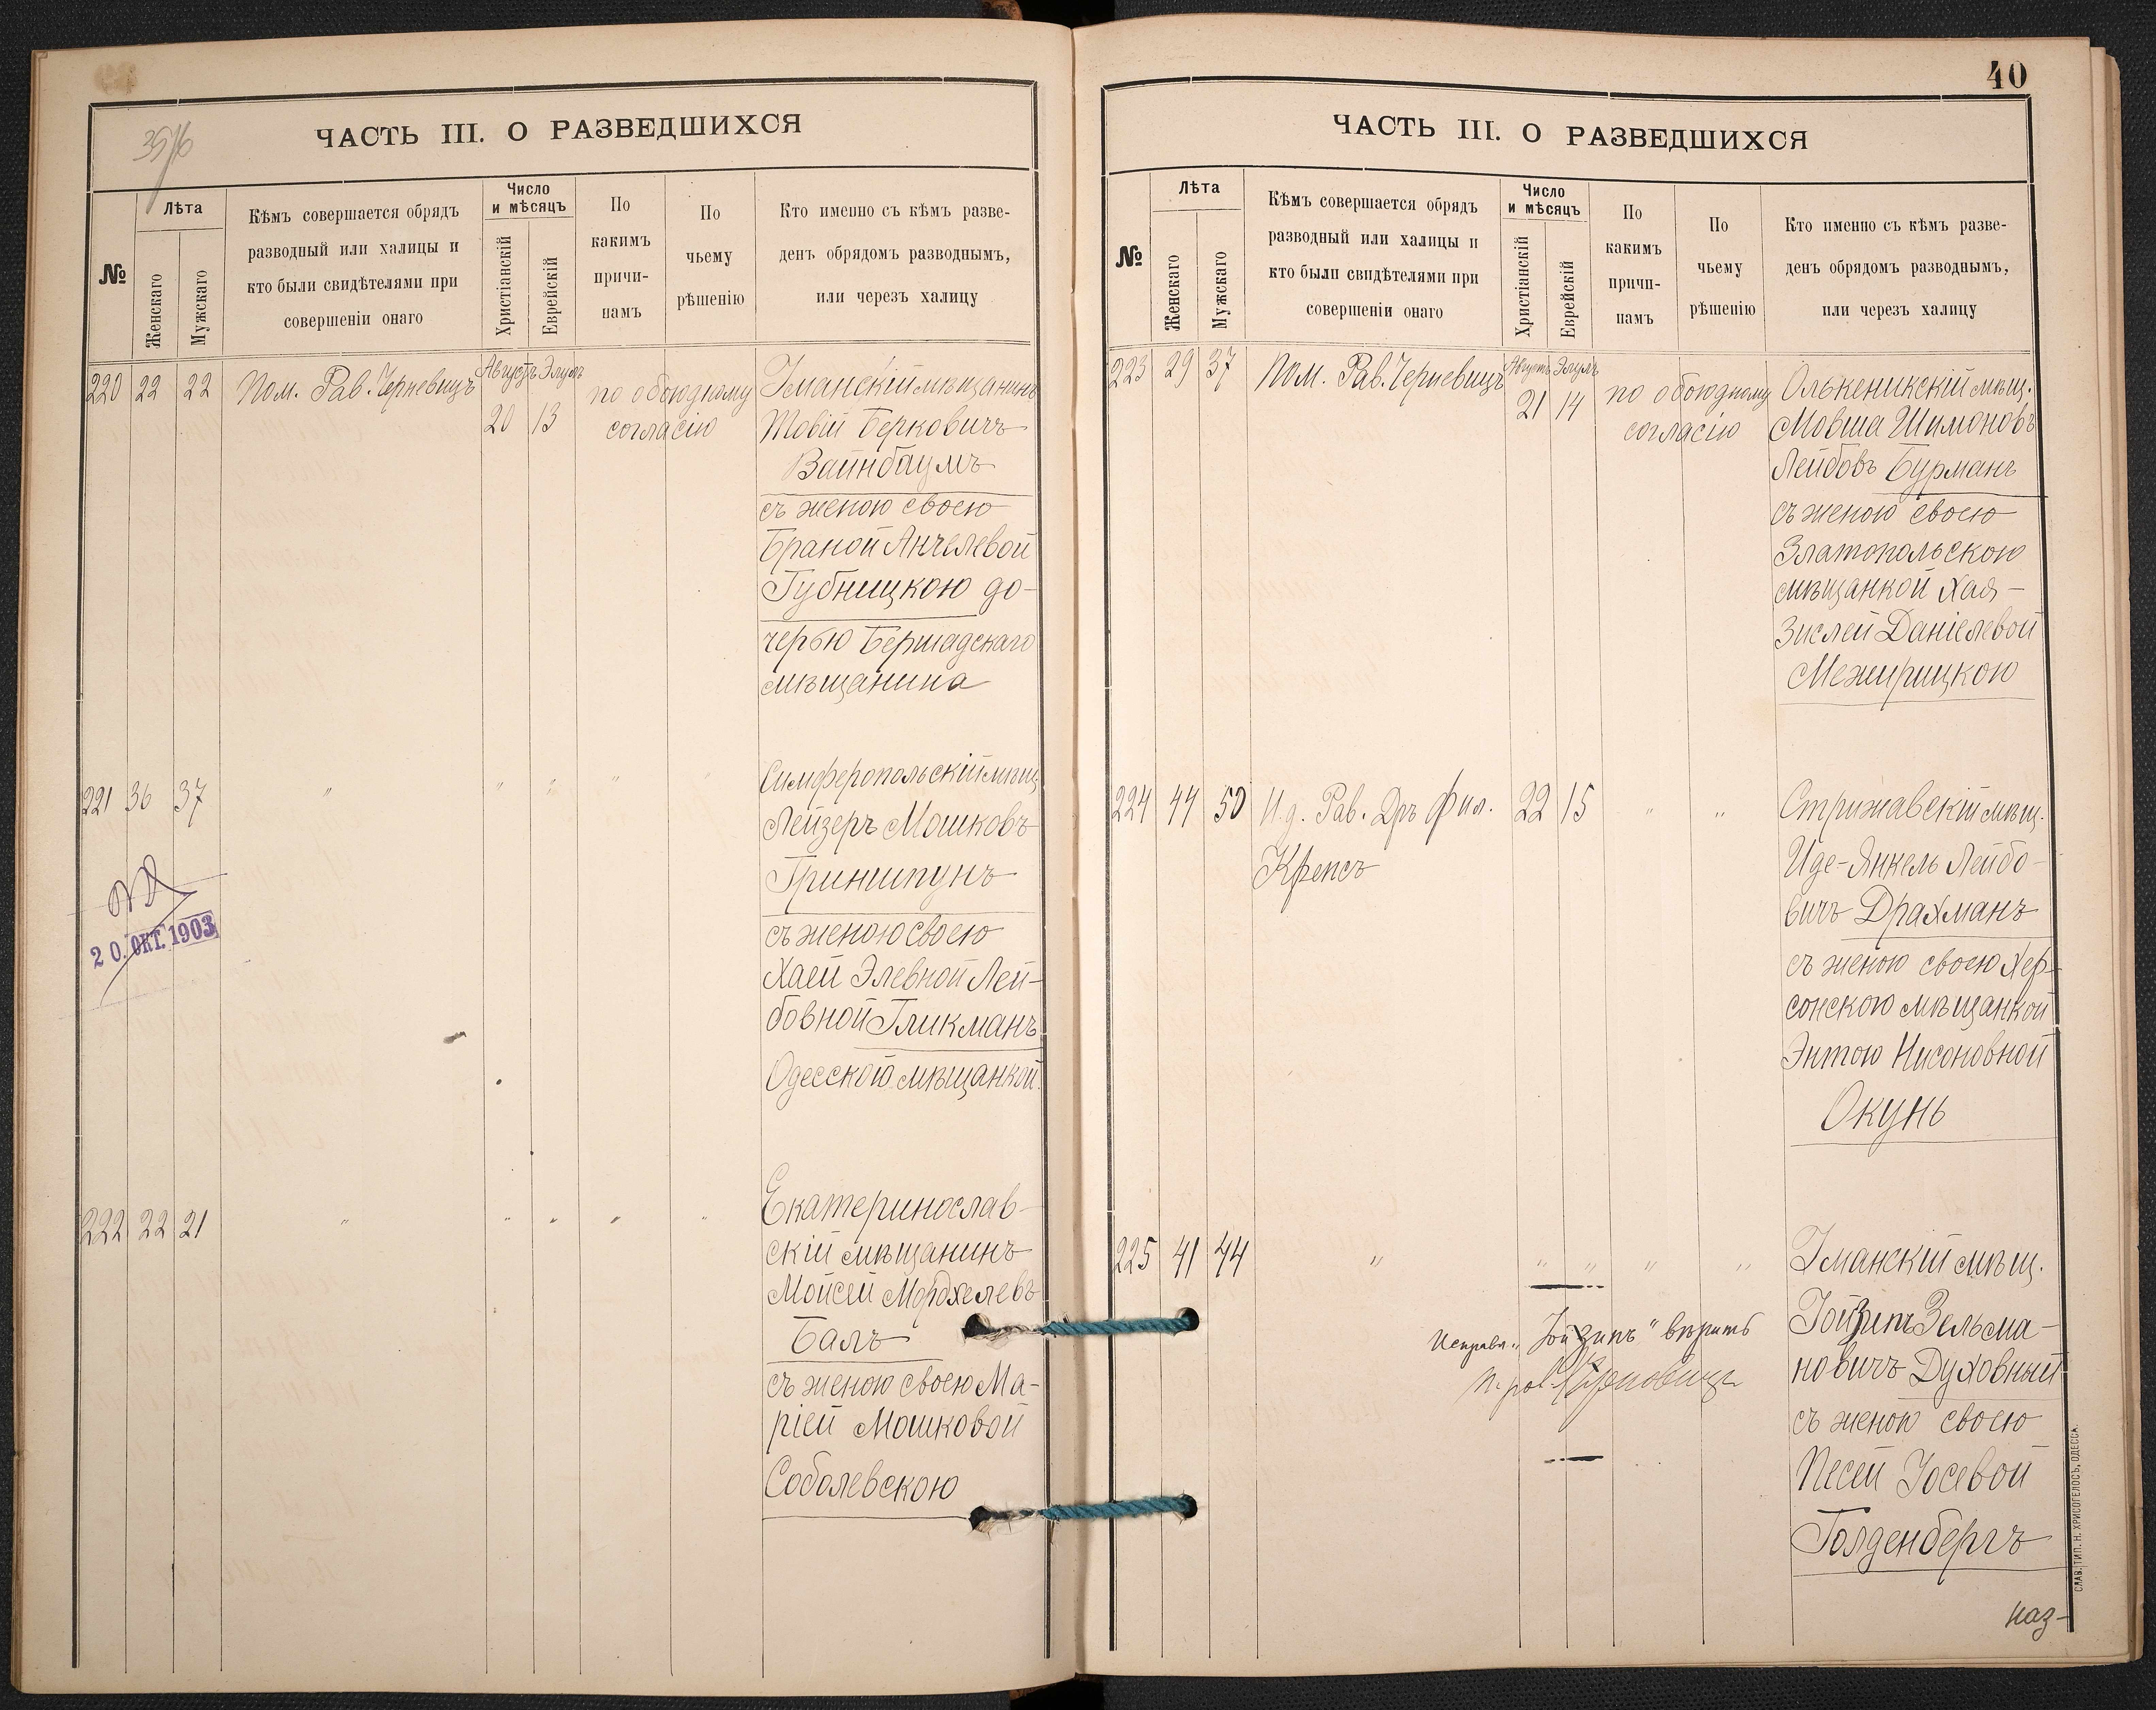 35/6
ЧАСТЬ III. О РАЗВЕДШИХСЯ
№
Лѣта
Женскаго
Мужскаго
Кѣмъ совершается обрядъ
разводный или халицы и
кто были свидѣтелями при
совершеніи онаго
Число
и мѣсяцъ
Христіанскій
Еврейскій
По
какимъ
причи-
намъ
По
чьему
рѣшенію
Кто именно съ кѣмъ разве-
денъ обрядомъ разводнымъ,
или черезъ халицу
220 22 22 Пом. Рав. Черневицъ Августъ Элулъ 20 13 по обоюдному согласію
Уманскій мѣщанинъ
Товій Берковичъ
Вайнбаумъ
съ женою своею
Браной Анчелевой
Губницкою до-
черью Бершадскаго
мѣщанина
221 36 37 " " " " "
Симферопольскій мѣщ.
Лейзеръ Мошковъ
Гриншпунъ
съ женою своею
Хаей Элевной Лей-
бовной Гликманъ
Одесской мѣщанкой
20. ОКТ. 1903
222 22 21 " " " " "
Екатеринослав-
скій мѣщанинъ
Мойсей Мордхелевъ
Балъ
съ женою своею Ма-
ріей Мошковой
Соболевскою
40
ЧАСТЬ III. О РАЗВЕДШИХСЯ
№
Лѣта
Женскаго
Мужскаго
Кѣмъ совершается обрядъ
разводный или халицы и
кто были свидѣтелями при
совершеніи онаго
Число
и мѣсяцъ
Христіанскій
Еврейскій
По
какимъ
причи-
намъ
По
чьему
рѣшенію
Кто именно съ кѣмъ разве-
денъ обрядомъ разводнымъ,
или черезъ халицу
223 29 37 Пом. Рав. Черневицъ Августъ Элулъ 21 14 по обоюдному согласію
Олькеникскій мѣщ.
Мовша Шимоновъ
Лейбовъ Бурманъ
съ женою своею
Златопольскою
мѣщанкой Хая-
Зислей Даніелевой
Межирицкою
224 44 50 И.д. Рав. Дръ Фил. 22 15 " "
Крепсъ
Стрижавскій мѣщ.
Иде-Янкель Лейбо-
вичъ Драхманъ
съ женою своею Хер-
сонскою мѣщанкой
Энтою Нисоновной
Окунь
225 41 44 " " " " "
Уманскій мѣщ.
Гойзипъ Зельма-
новичъ Духовный
съ женою своею
Песей Іосевой
Голденбергъ
Исправл. "Гойзипъ" вѣрить
п. рав. Черновицъ
наз-
СЛАВ. ТИП. Н. ХРИСОГЕЛОСЪ, ОДЕССА.